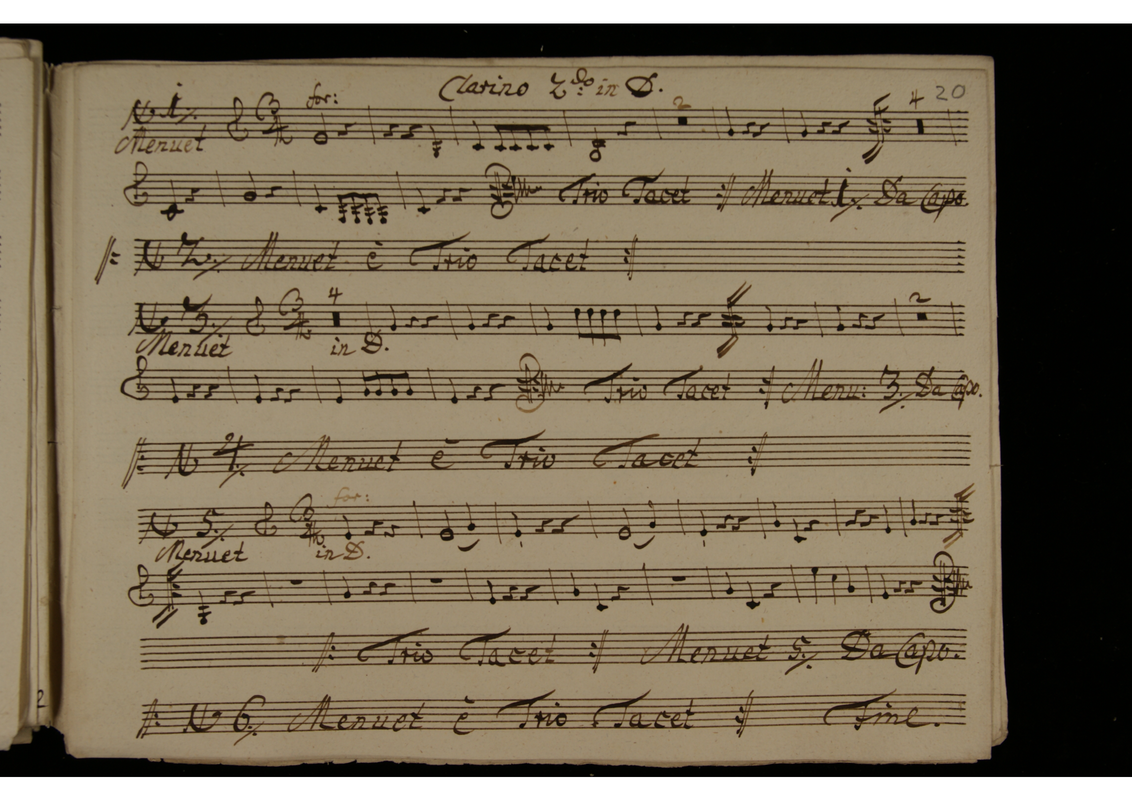 Clarino 2do: in D.
20
No 1/. for: 2 4
Menuet
Trio Tacet Menuet 1/. Da Capo.
No 2/. Menuet è Trio Tacet
No 3/. 4 2
Menuet in D.
Trio Tacet Menu: 3/. Da Capo.
No 4/. Menuet è Trio Tacet
No 5/. for:
Menuet in D.
Trio Tacet Menuet 5/. Da Capo.
No 6/. Menuet è Trio Tacet Fine.
2